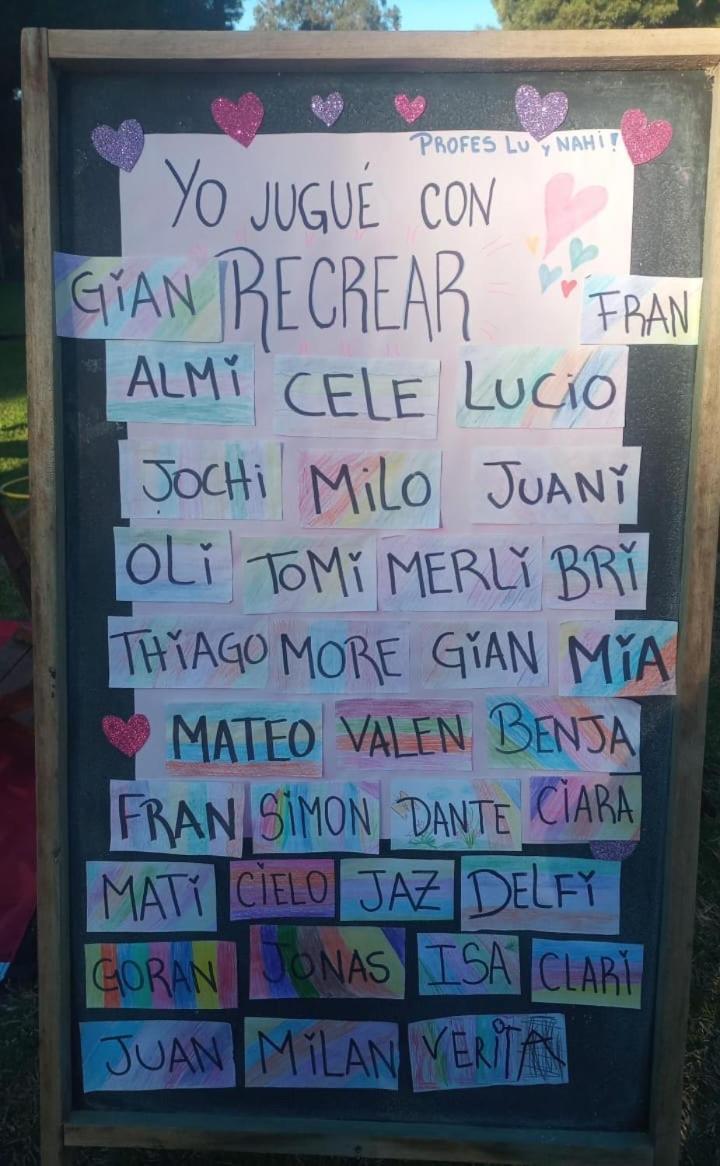 PROFES LU y NAHI!
YO JUGUÉ CON
RECREAR
GiAN FRAN
ALMi CELE LUCiO
JOCHi MiLO JUANi
OLi TOMi MERLi BRi
THiAGO MORE GiAN MiA
MATEO VALEN BENJA
FRAN SiMON DANTE CiARA
MATi CIELO JAZ DELFi
GORAN JONAS ISA CLARi
JUAN MiLAN VERiTA